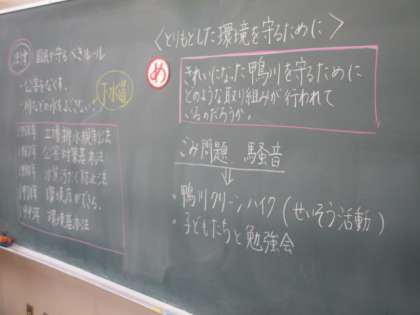 国民が守るべきルール
公害をなくす。
下水道
工場排水規制法
公害対策基本法
環境基本法
〈とりもどした環境を守るために〉
め
きれいになった鴨川を守るために
どのような取り組みが行われて
いるのだろうか。
ごみ問題 騒音
⇓
・鴨川クリーンハイク（せいそう活動）
・子どもたちと勉強会